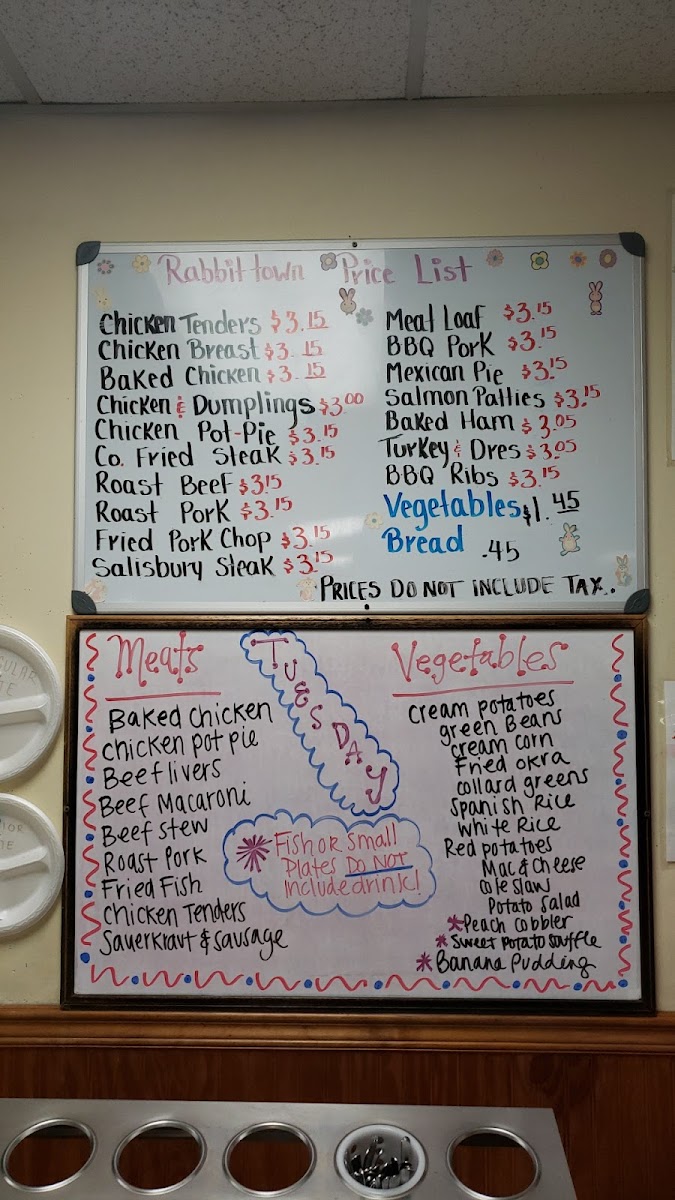 Rabbittown Price List
Chicken Tenders $3.15
Chicken Breast $3.15
Baked Chicken $3.15
Chicken & Dumplings $3.00
Chicken Pot-Pie $3.15
Co. Fried Steak $3.15
Roast Beef $3.15
Roast Pork $3.15
Fried Pork Chop $3.15
Salisbury Steak $3.15
Meat Loaf $3.15
BBQ Pork $3.15
Mexican Pie $3.15
Salmon Patties $3.15
Baked Ham $3.05
Turkey & Dres $3.05
BBQ Ribs $3.15
Vegetables $1.45
Bread .45
PRICES DO NOT INCLUDE TAX.
Meats
Baked Chicken
Chicken pot pie
Beef livers
Beef Macaroni
Beef stew
Roast Pork
Fried Fish
Chicken Tenders
Sauerkraut & Sausage
TUESDAY
Fish or Small
Plates Do NOT
include drink!
Vegetables
Cream potatoes
green Beans
cream corn
Fried okra
collard greens
Spanish Rice
White Rice
Red potatoes
Mac & Cheese
Cole Slaw
Potato Salad
*Peach Cobbler
*Sweet Potato Souffle
*Banana Pudding